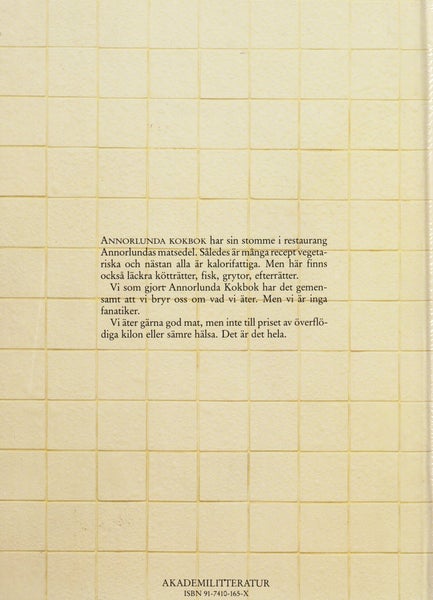 ANNORLUNDA KOKBOK har sin stomme i restaurang
Annorlundas matsedel. Således är många recept vegeta-
riska och nästan alla är kalorifattiga. Men här finns
också läckra kötträtter, fisk, grytor, efterrätter.
Vi som gjort Annorlunda Kokbok har det gemen-
samt att vi bryr oss om vad vi äter. Men vi är inga
fanatiker.
Vi äter gärna god mat, men inte till priset av överflö-
diga kilon eller sämre hälsa. Det är det hela.
AKADEMILITTERATUR
ISBN 91-7410-165-X